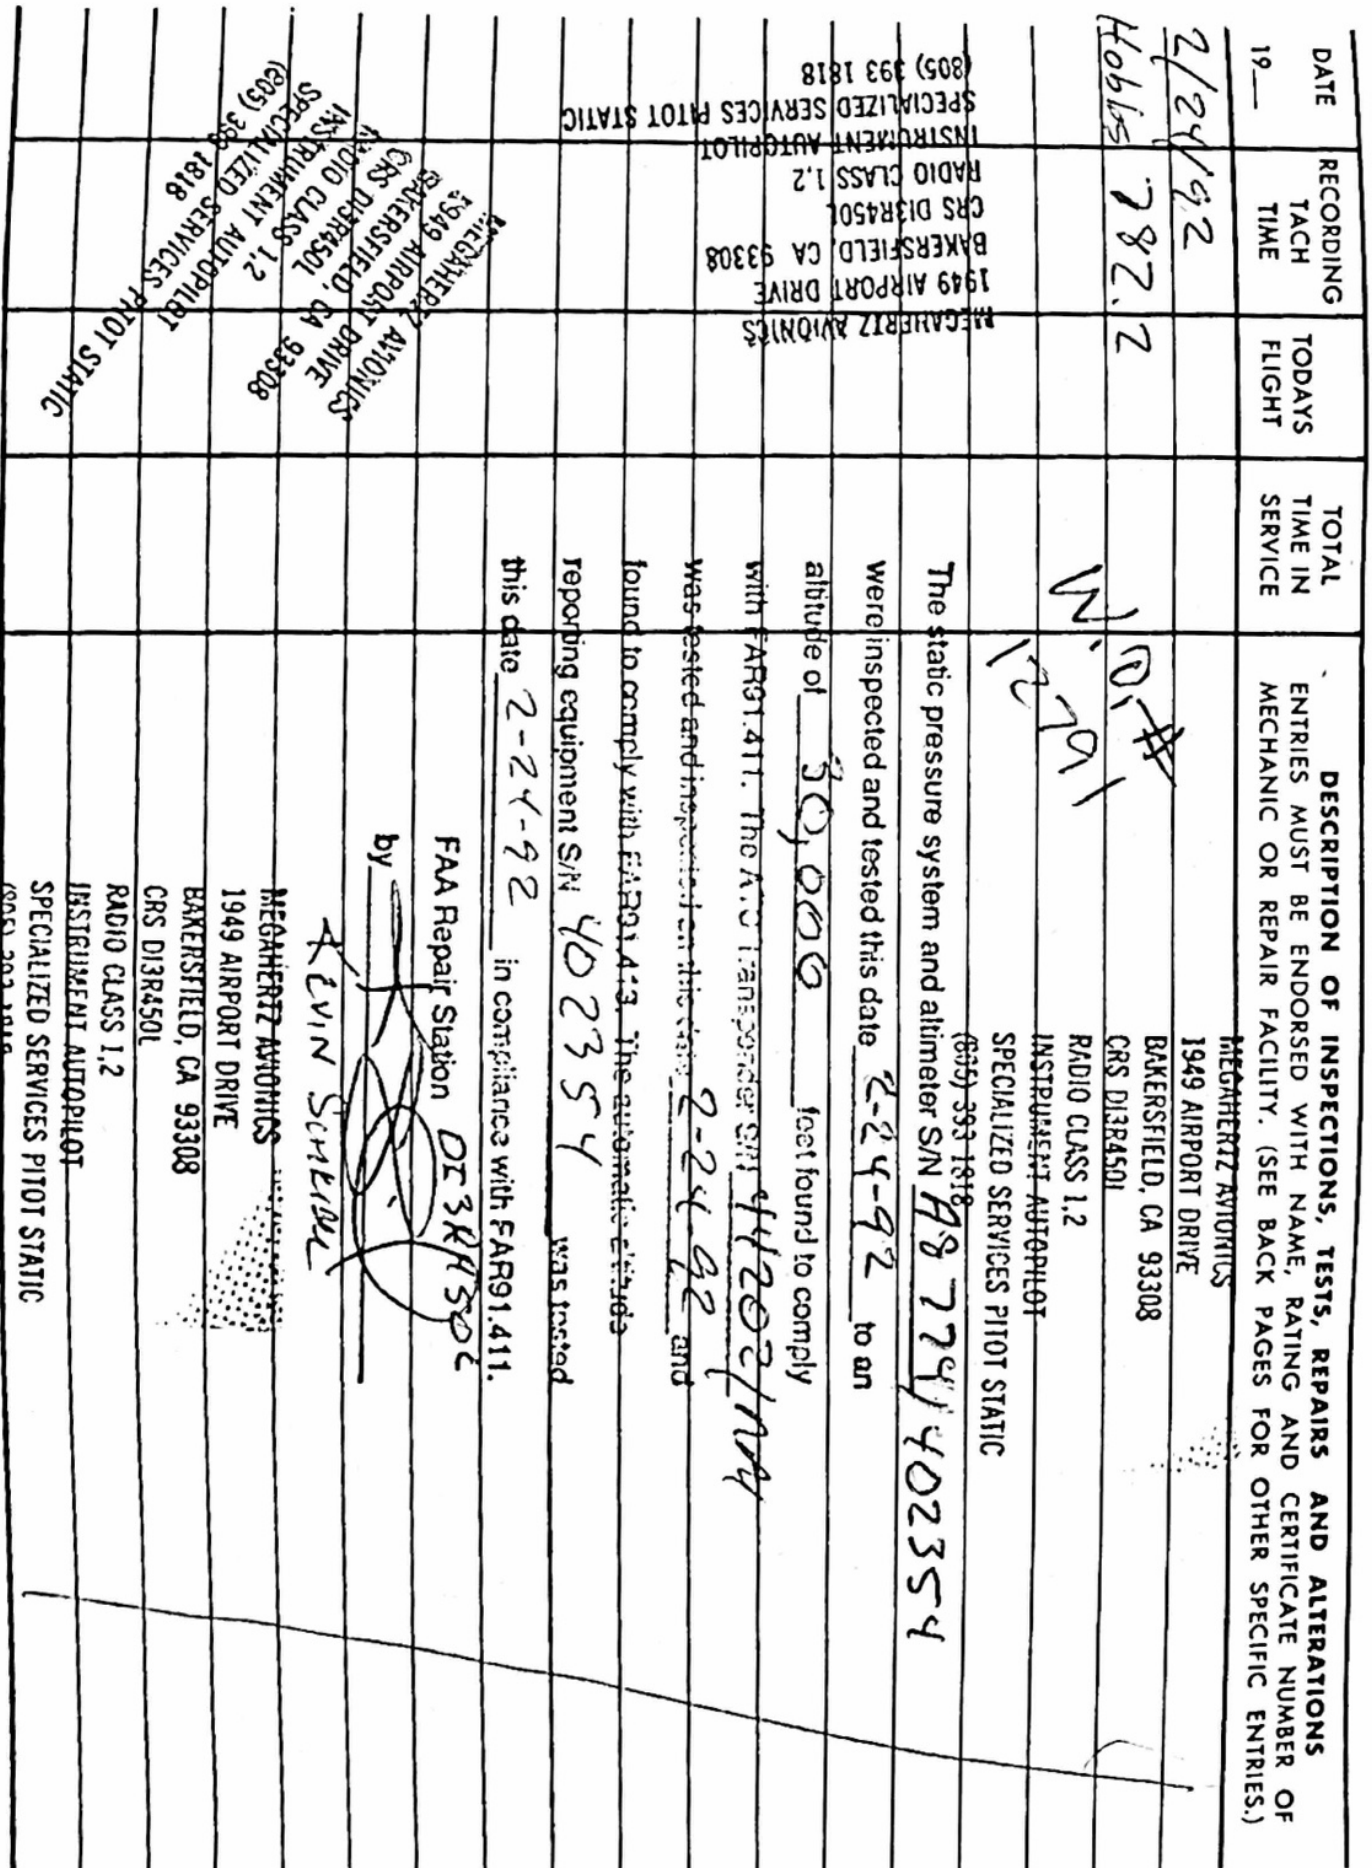 DATE
19__
RECORDING
TACH
TIME
TODAYS
FLIGHT
TOTAL
TIME IN
SERVICE
DESCRIPTION OF INSPECTIONS, TESTS, REPAIRS AND ALTERATIONS
ENTRIES MUST BE ENDORSED WITH NAME, RATING AND CERTIFICATE NUMBER OF
MECHANIC OR REPAIR FACILITY. (SEE BACK PAGES FOR OTHER SPECIFIC ENTRIES.)
2/24/92
Hobbs 782.2
W.O.#
12791
MEGAHERTZ AVIONICS
1949 AIRPORT DRIVE
BAKERSFIELD, CA 93308
CRS DI3R450L
RADIO CLASS 1,2
INSTRUMENT AUTOPILOT
SPECIALIZED SERVICES PITOT STATIC
(805) 393 1818
The static pressure system and altimeter S/N A8774/402354
were inspected and tested this date 2-24-92 to an
altitude of 30,000 feet found to comply
with FAR91.411. The ATC Transponder S/N 44202/NA
was tested and inspected on this date 2-24-92 and
found to comply with FAR91.413. The automatic altitude
reporting equipment S/N 402354 was tested
this date 2-24-92 in compliance with FAR91.411.
FAA Repair Station
by
KEVIN
MEGAHERTZ AVIONICS
1949 AIRPORT DRIVE
BAKERSFIELD, CA 93308
CRS DI3R450L
RADIO CLASS 1,2
INSTRUMENT AUTOPILOT
SPECIALIZED SERVICES PITOT STATIC
(805) 393 1818
MEGAHERTZ AVIONICS
1949 AIRPORT DRIVE
BAKERSFIELD, CA 93308
CRS DI3R450L
RADIO CLASS 1,2
INSTRUMENT AUTOPILOT
SPECIALIZED SERVICES PITOT STATIC
(805) 393 1818
MEGAHERTZ AVIONICS
1949 AIRPORT DRIVE
BAKERSFIELD, CA 93308
CRS DI3R450L
RADIO CLASS 1,2
INSTRUMENT AUTOPILOT
SPECIALIZED SERVICES PITOT STATIC
(805) 393 1818